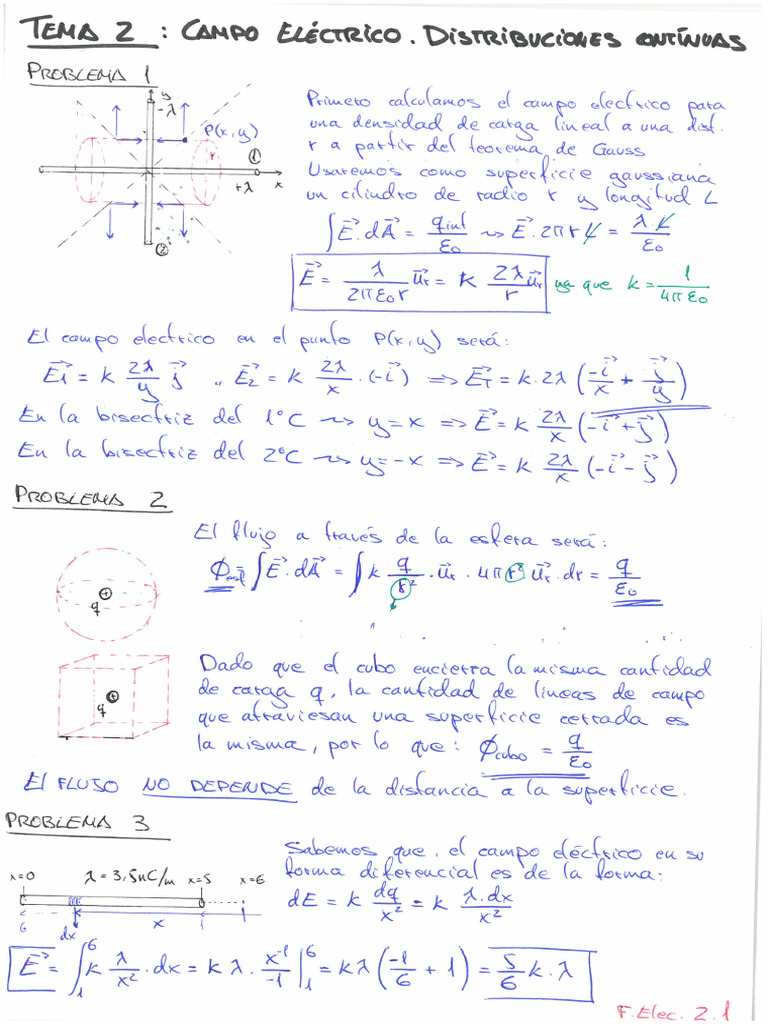 TEMA 2 : CAMPO ELÉCTRICO. DISTRIBUCIONES CONTÍNUAS
PROBLEMA 1
y
-λ
P(x,y)
r
①
+λ
x
②
Primero calculamos el campo electrico para
una densidad de carga lineal a una dist.
r a partir del teorema de Gauss
Usaremos como superficie gaussiana
un cilindro de radio r y longitud L
∫E⃗·dA⃗ = q int / ε₀ ⇝ E⃗·2πrL = λL / ε₀
E⃗ = λ / 2πε₀r u⃗r = K 2λ / r u⃗r ya que k = 1 / 4πε₀
El campo electrico en el punto P(x,y) será:
E⃗1 = k 2λ / y j⃗ ,, E⃗2 = k 2λ / x · (-i⃗) ⇒ E⃗T = k·2λ (-i⃗ / x + j⃗ / y)
En la bisectriz del 1ºC ⇝ y=x ⇒ E⃗ = k 2λ / x (-i⃗+j⃗)
En la bisectriz del 2ºC ⇝ y=-x ⇒ E⃗ = k 2λ / x (-i⃗-j⃗)
PROBLEMA 2
El flujo a través de la esfera será:
ϕesf = ∫E⃗·dA⃗ = ∫k q / r² · u⃗r · 4πr² u⃗r · dr = q / ε₀
+
q
Dado que el cubo encierra la misma cantidad
de carga q, la cantidad de lineas de campo
que atraviesan una superficie cerrada es
la misma, por lo que: ϕcubo = q / ε₀
+
q
El FLUJO NO DEPENDE de la distancia a la superficie.
PROBLEMA 3
Sabemos que, el campo eléctrico en su
forma diferencial es de la forma:
dE = k dq / x² = k λ·dx / x²
x=0 λ = 3,5nC/m x=5 x=6
6 dx x 1
E⃗ = ∫₁⁶ k λ / x² · dx = kλ · x⁻¹ / -1 |₁⁶ = kλ (-1 / 6 + 1) = 5 / 6 k·λ
F.Elec. 2.1